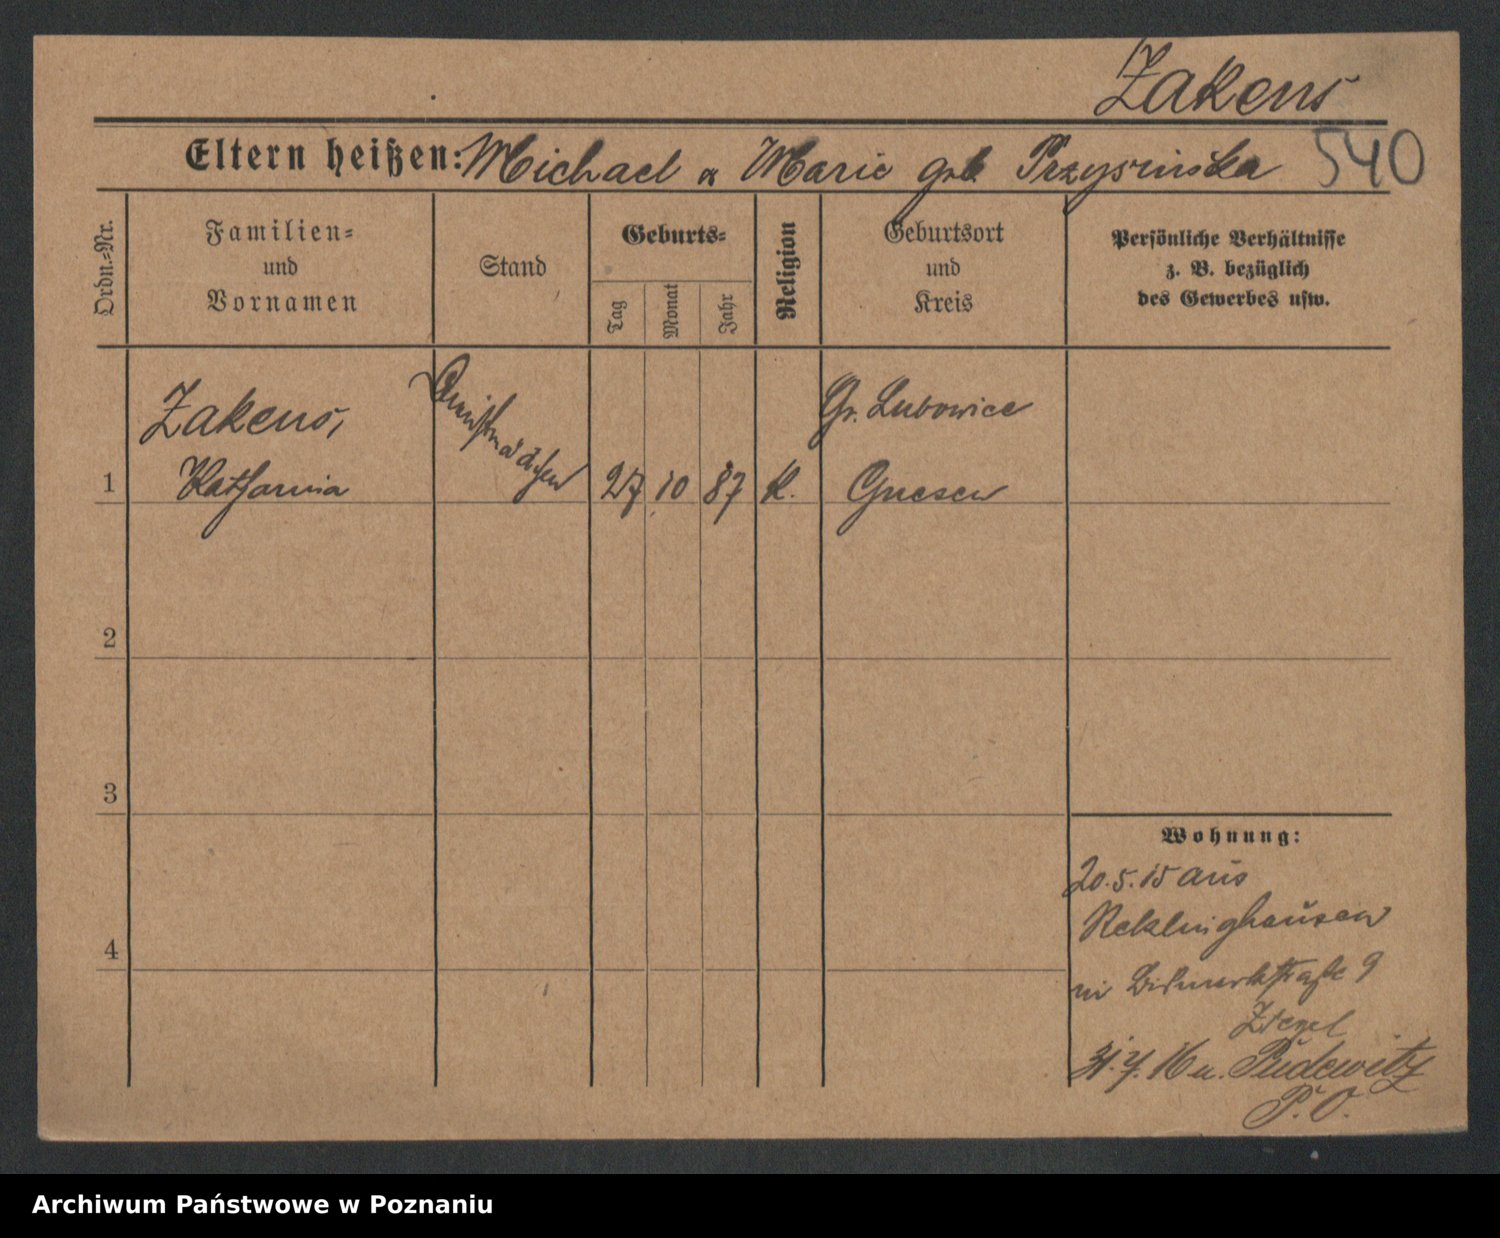 Zakens
Eltern heißen: Michael & Marie geb. Przysinska 540
Ordn.=Nr.
Familien=
und
Vornamen
Stand
Geburts=
Tag
Monat
Jahr
Religion
Geburtsort
und
Kreis
Persönliche Verhältnisse
z. B. bezüglich
des Gewerbes usw.
Zakens, Gr. Lubowice
1 Katharina Dienstmädchen 27 10 87 K. Gnesen
2
3
4
Wohnung:
20.5.15 aus
Recklinghausen
in Bismarkstraße 9
31.7.16 n. Pudewitz
P. O.
Archiwum Państwowe w Poznaniu